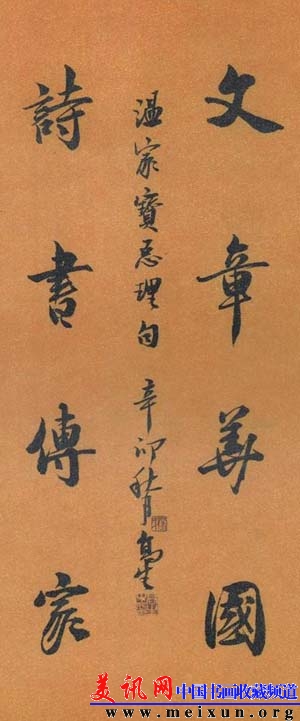 文章華國
温家寶总理句 辛卯秋月
詩書傳家
美讯网 中国书画收藏频道
www.meixun.org